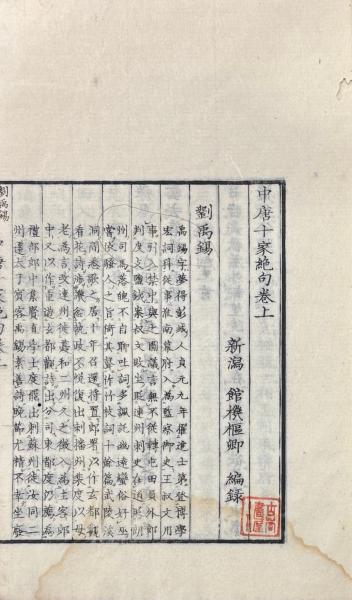 中唐十家絶句卷上
新潟 館機樞卿 編録
劉禹錫
禹錫字夢得彭城人貞元九年擢進士第登博學
宏詞科從事淮南幕府入為監察御史王叔文用
事引入禁中與之圖議言無不從轉屯田員外郎
判度支鹽鐵案叔文敗坐貶連州刺史在道貶朗
州司馬落魄不自聊吐詞多諷託幽遠蠻俗好巫
嘗依騷人之旨倚其聲作竹枝詞十餘篇武陵溪
洞間悉歌之居十年召還將置郎署以作玄都觀
看花詩涉譏忿執政不悦復出刺播州裴度以母
老為言改連州徙夔和二州久之徵入為主客郎
中又以作重遊玄都觀詩出分司東都度仍薦為
禮部郎中集賢直學士度罷出刺蘇州徙汝同二
州遷太子賓客禹錫素善詩晚節尤精不幸坐廢